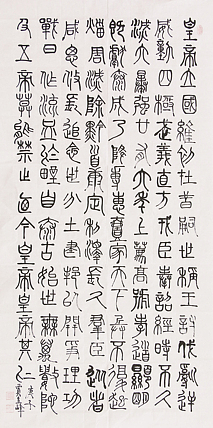 皇帝立國維初在昔嗣世稱王討伐亂逆
威動四極武義直方戎臣奉詔經時不久
滅六暴強廿有六年上薦高號孝道顯明
既獻泰成乃降專惠壹家天下兵不復起
災害滅除黔首康定利澤長久群臣從者
咸思攸長追念亂世分土建邦以開爭理功
戰日作流血於野自泰古始世無萬數陀
及五帝莫能禁止廼今皇帝